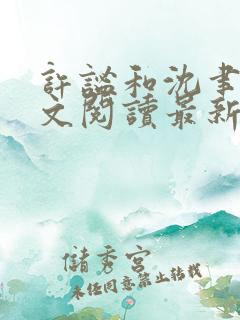 許謐和沈聿
文閱讀最新
儲秀宮
未任同意禁止转载